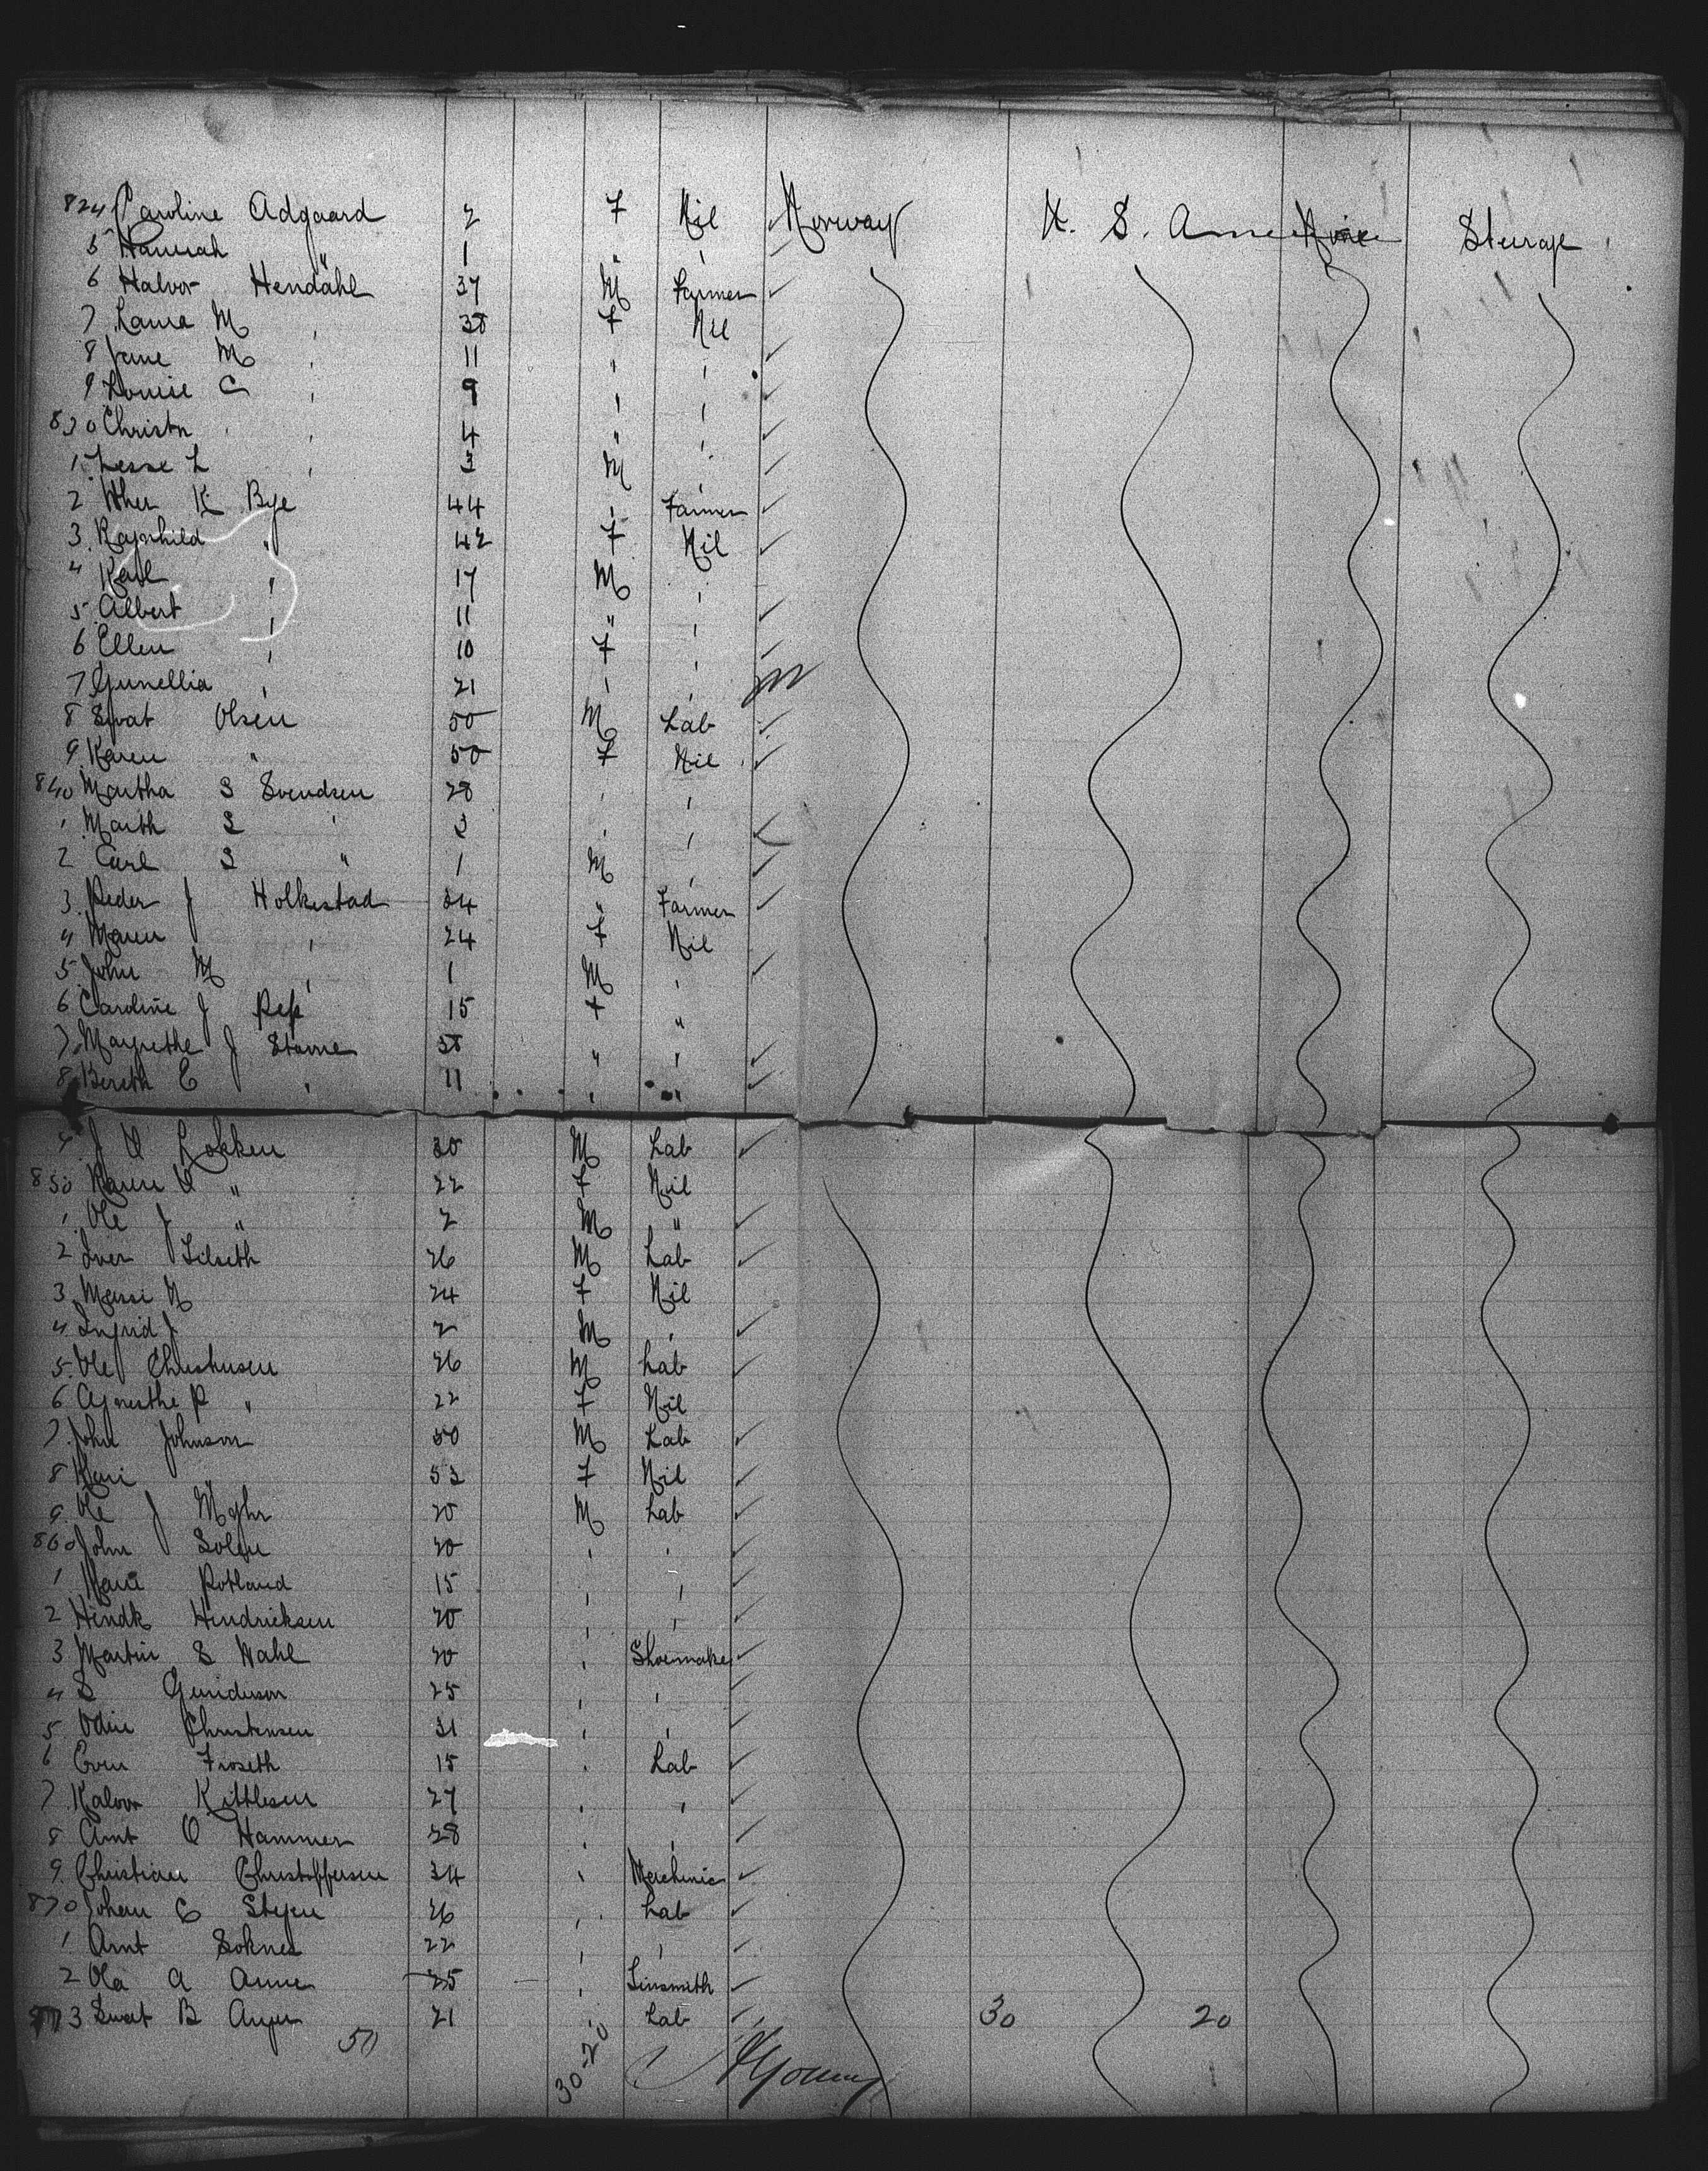 824 Caroline Adgaard 2 F Nil Norway U. S. America None Steerage
5 Hannah " 1 " "
6 Halvor Hendahl 37 M Farmer
7 Laura M " 38 F Nil
8 Jene M " 11 " "
9 Louise C " 9 " "
830 Christn " 4 " "
1 Lesse L " 3 M "
2 K Bye 44 " Farmer
3 Ragnhild " 42 F Nil
4 Karl " 17 M "
5 Albert " 11 " "
6 Ellen " 10 F "
7 Gunellia " 21 " "
8 Sivat Olsen 50 M Lab
9 Karen " 50 F Nil
840 Martha S Svendsen 28 " "
1 Marth S " 3 " "
2 Carl S " 1 M "
3 Peder J Holkestad 34 " Farmer
4 Maren " 24 F Nil
5 John M " 1 M "
6 Caroline J 15 F "
7 Margrethe J Storne 38 " "
8 Bereth E " 11 " "
9 J O Lokken 30 M Lab
850 Karen O " 22 F Nil
1 Ole J " 2 M "
2 Iver Lilseth 26 M Lab
3 Massi N 24 F Nil
4 Ingrid J 2 M "
5 Ole Christensen 26 M Lab
6 Agnethe P " 22 F Nil
7 John Johnson 50 M Lab
8 Kari " 53 F Nil
9 Ole J Myhr 20 M Lab
860 John Solem 20 " "
1 Rotland 15 " "
2 Hendk Hendricksen 20 " "
3 Martin S Wahl 20 " Shoemaker
4 S Gunderson 25 " "
5 Odin Christensen 31 " "
6 Even Froseth 15 " Lab
7 Halvor Kittlesen 27 " "
8 Arnt O Hammer 28 " "
9 Christian Christoffersen 34 " Mechinic
870 Johan E 26 " Lab
1 Arnt Soknes 22 " "
2 Ola A Aune 25 " Tinsmith
873 Sivert B 21 " Lab 30 20
50 30-20 Young